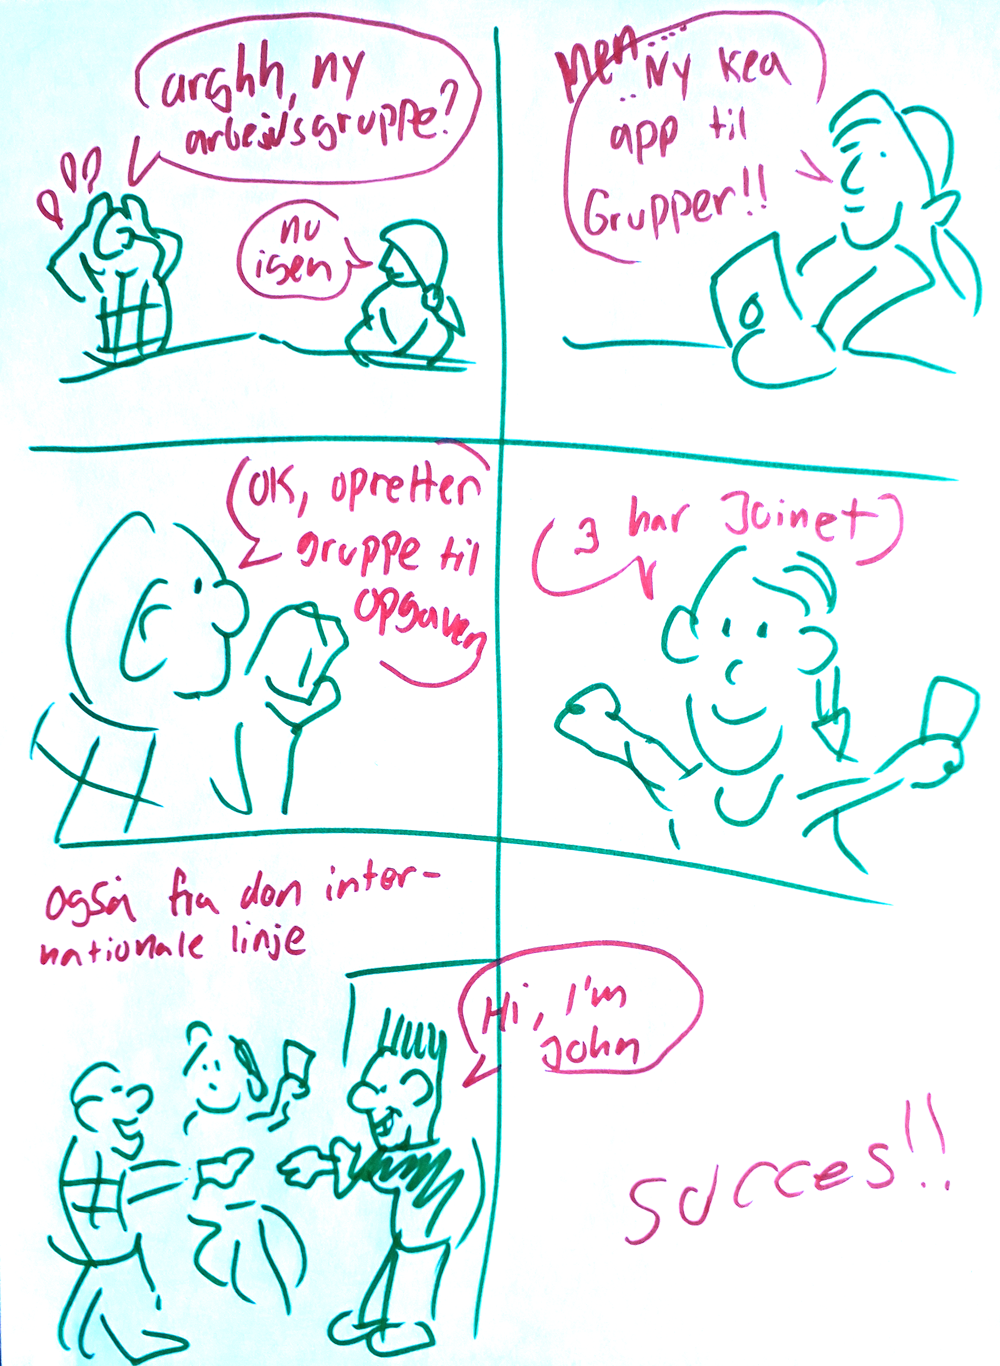 arghh, ny
arbejdsgruppe?
nu
igen
Men...
..Ny kea
app til
Grupper!!
OK, opretter
gruppe til
opgaven
3 har Joinet
Også fra den inter-
nationale linje
Hi, I'm
John
Succes!!